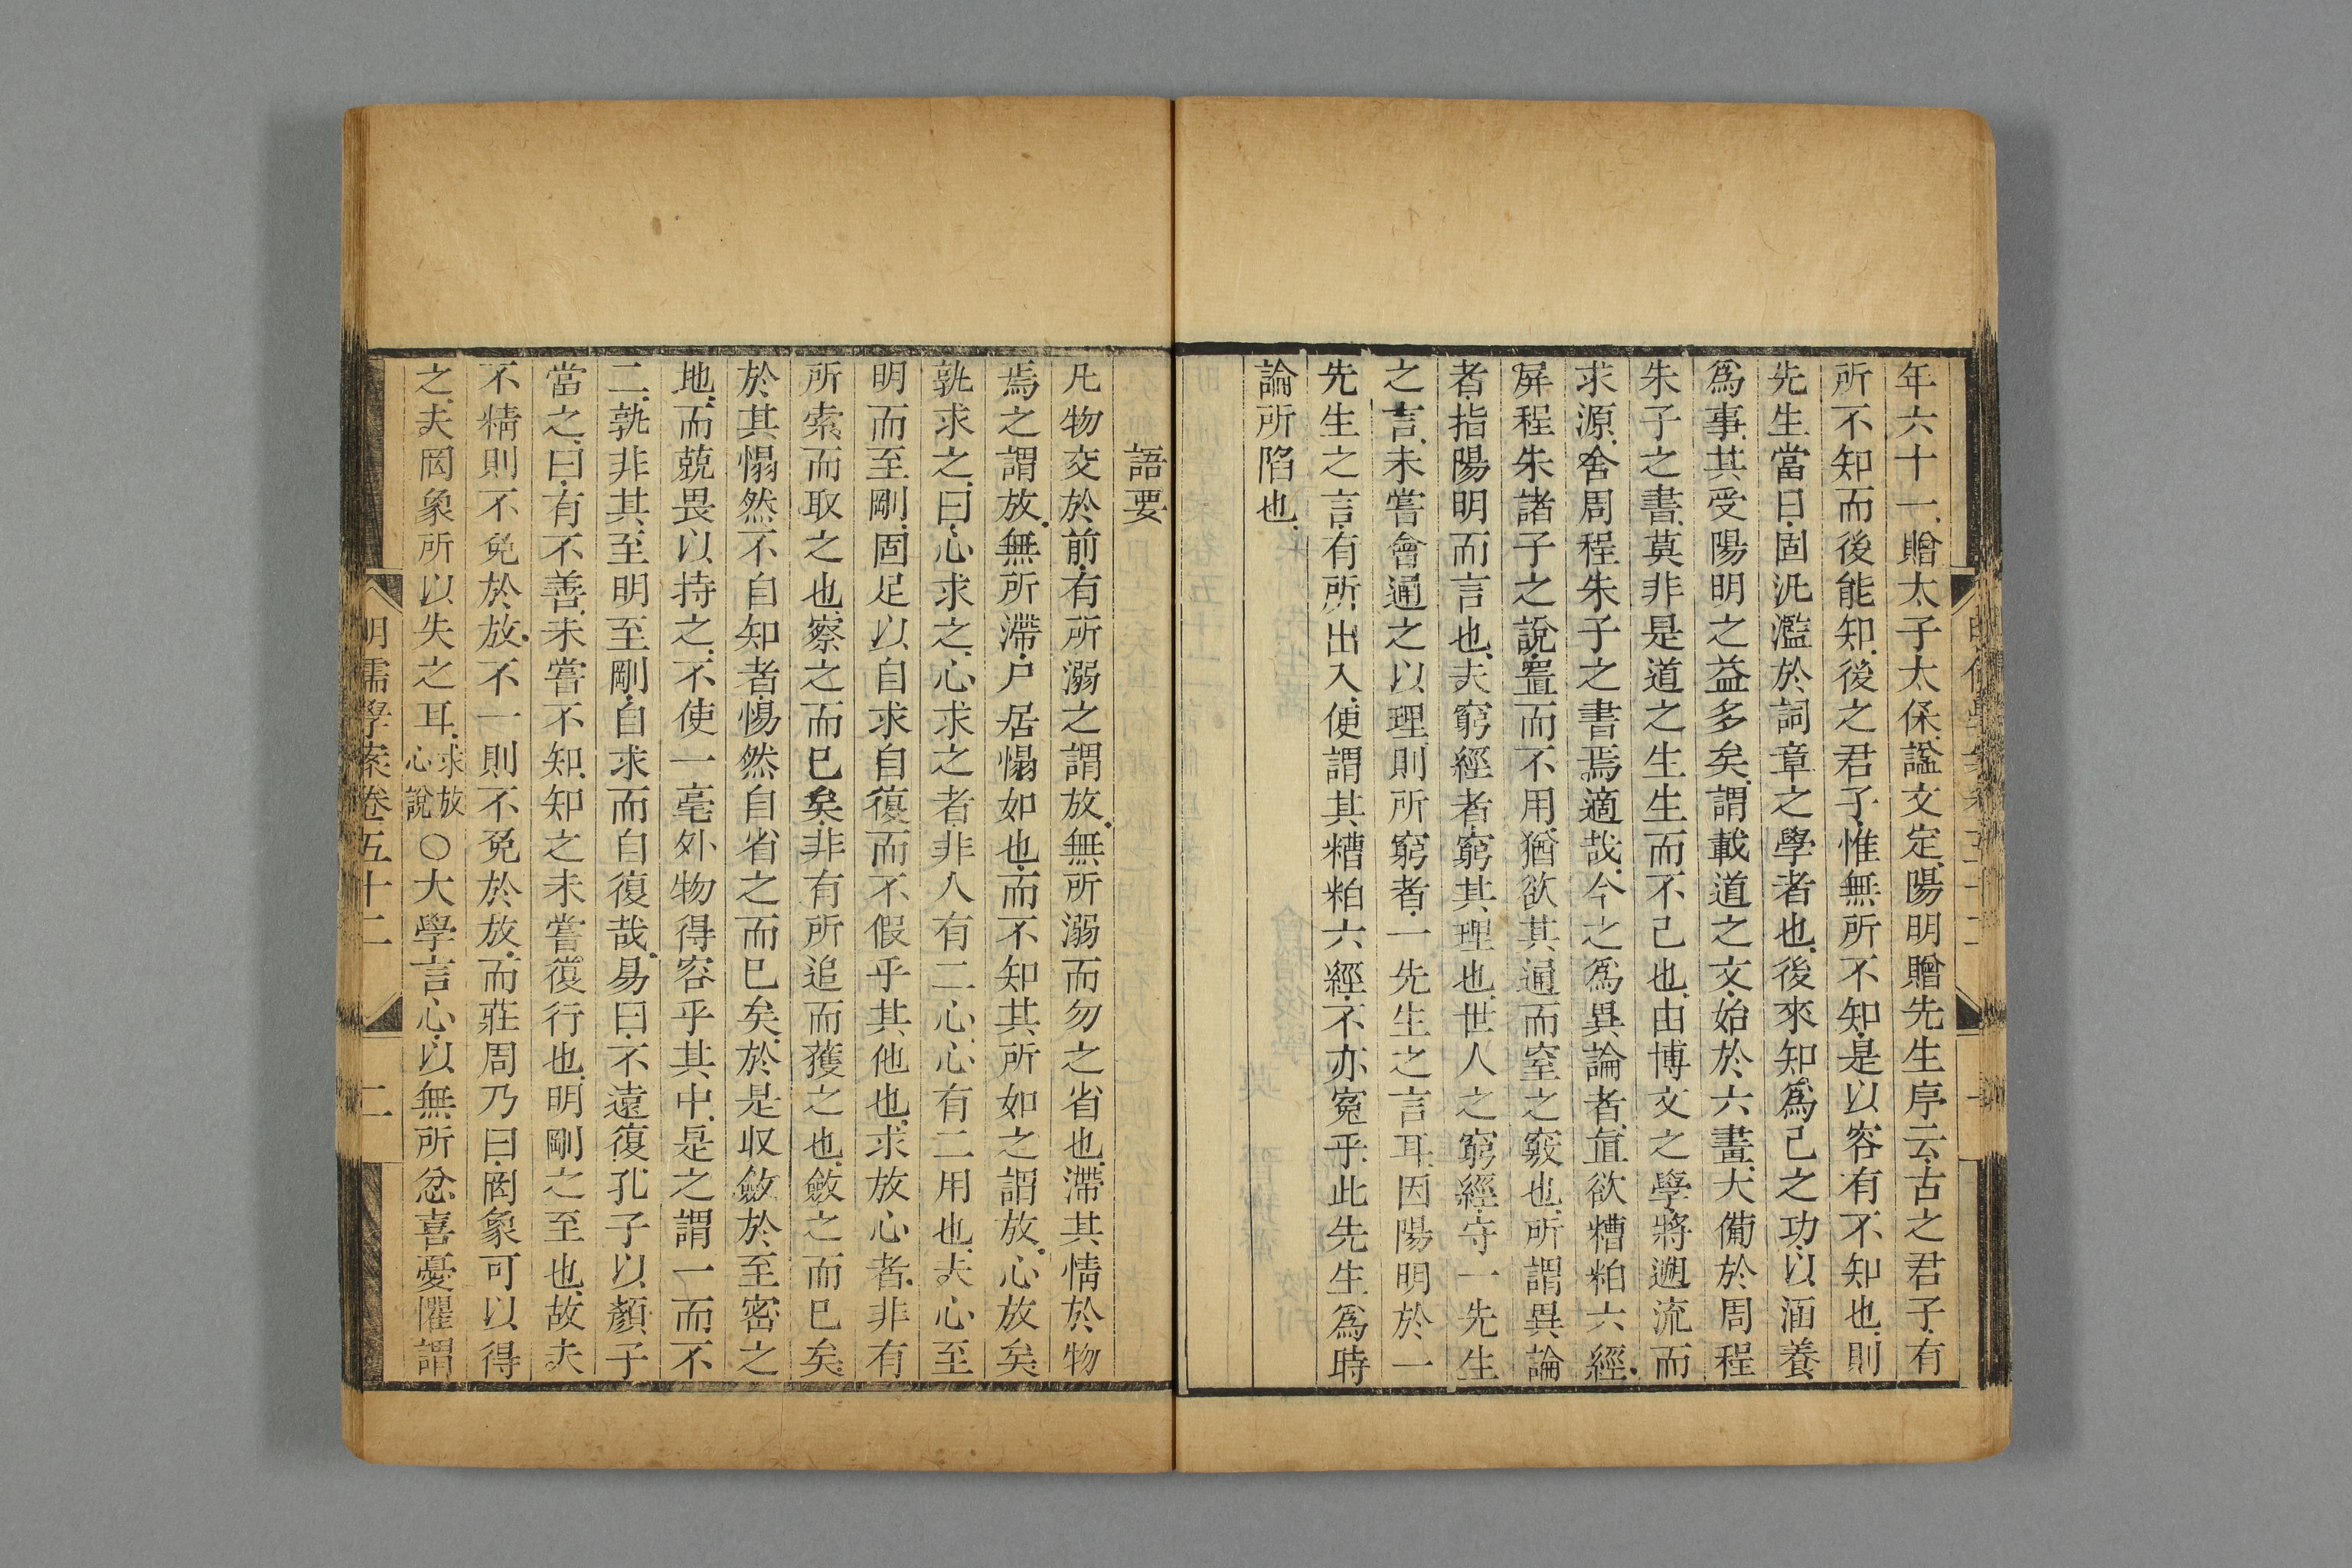 年六十一贈太子太保諡文定陽明贈先生序云古之君子有
所不知而後能知後之君子惟無所不知是以容有不知也則
先生當日固汎濫於詞章之學者也後來知爲己之功以涵養
爲事其受陽明之益多矣謂載道之文始於六畫大備於周程
朱子之書莫非是道之生生而不已也由博文之學將遡流而
求源舍周程朱子之書焉適哉今之爲異論者直欲糟粕六經
屏程朱諸子之說置而不用猶欲其通而窒之竅也所謂異論
者指陽明而言也夫窮經者窮其理也世人之窮經守一先生
之言未嘗會通之以理則所窮者一先生之言耳因陽明於一
先生之言有所出入便謂其糟粕六經不亦寃乎此先生爲時
論所陷也
語要
凡物交於前有所溺之謂放無所溺而勿之省也滯其情於物
焉之謂放無所滯戶居愓如也而不知其所如之謂放心放矣
孰求之曰心求之心求之者非人有二心心有二用也夫心至
明而至剛固足以自求自復而不假乎其他也求放心者非有
所索而取之也察之而已矣非有所追而獲之也斂之而已矣
於其愓然不自知者惕然自省之而已矣於是收斂於至密之
地而兢畏以持之不使一毫外物得容乎其中是之謂一而不
二孰非其至明至剛自求而自復哉易曰不遠復孔子以顏子
當之曰有不善未嘗不知知之未嘗復行也明剛之至也故夫
不精則不免於放不一則不免於放而莊周乃曰罔象可以得
之夫罔象所以失之耳求放心說○大學言心以無所忿喜憂懼謂
明儒學案卷五十二 二